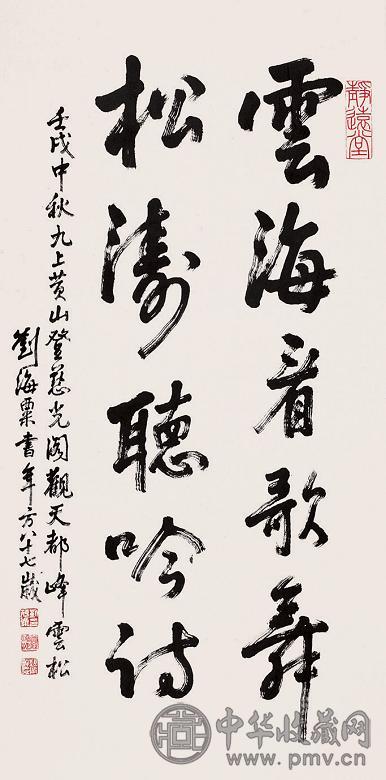 靜遠堂
雲海看歌舞
松濤聽吟詩
壬戌中秋九上黄山登慈光阁觀天都峰雲松
劉海粟書年方八十七歲
中华收藏网
www.pmv.cn